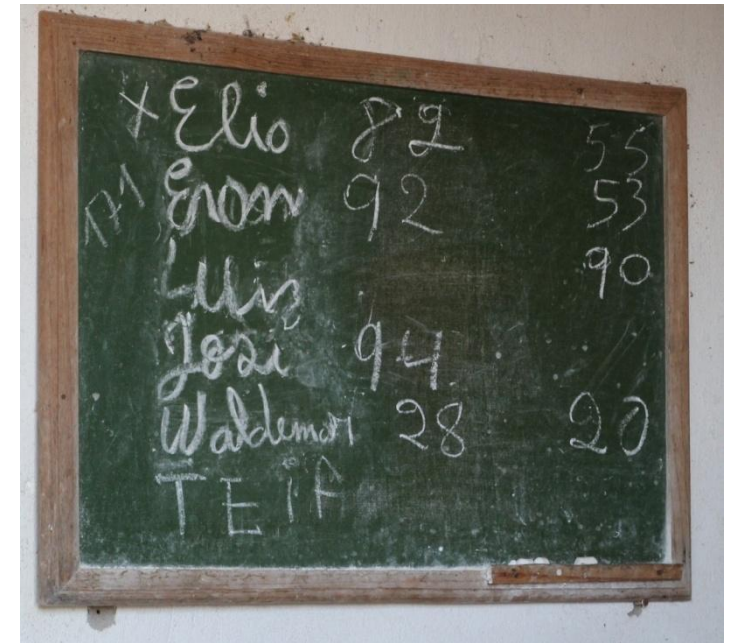 X Elio 82 55
171 Eron 92 53
Luiz 90
José 94
Waldemar 28 20
TEIA